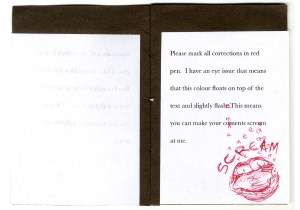 Please mark all corrections in red
pen. I have an eye issue that means
that this colour floats on top of the
text and slightly flashes. This means
you can make your comments scream
at me.
SCREAM